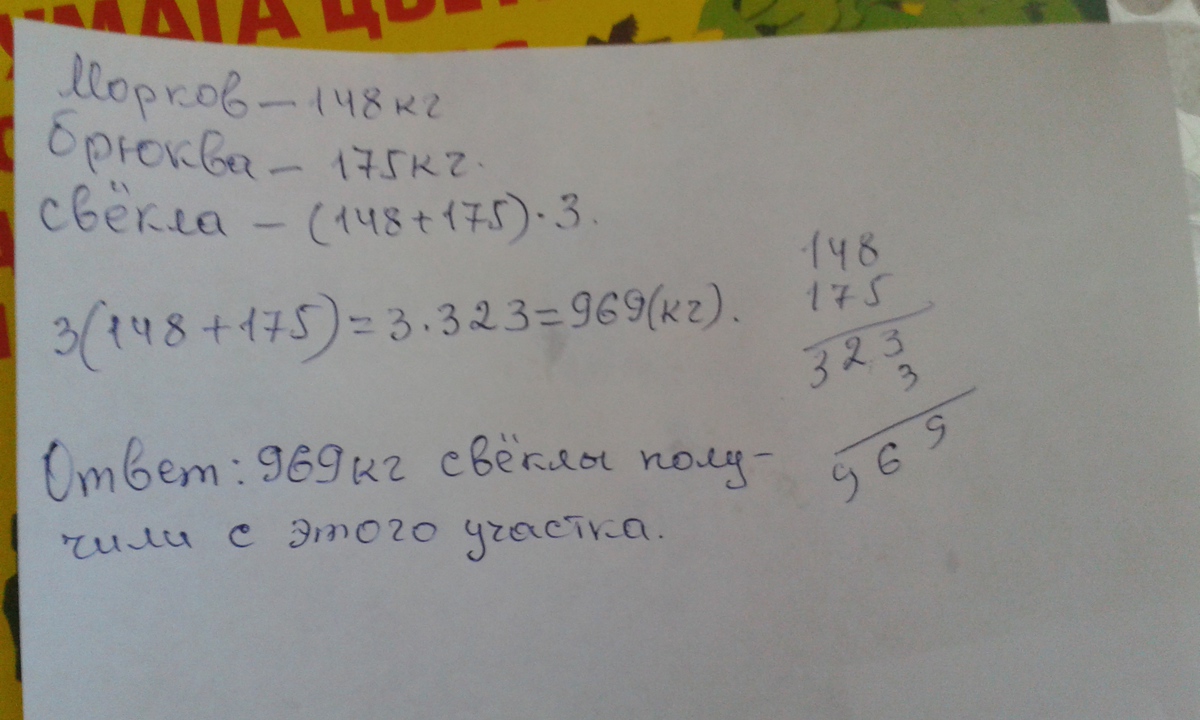 УМАГА ЦВЕТ
Морков – 148кг
брюква – 175кг.
свёкла – (148+175)·3.
3(148+175)=3·323=969(кг).
148
175
323
3
969
Ответ: 969кг свёклы полу-
чили с этого участка.